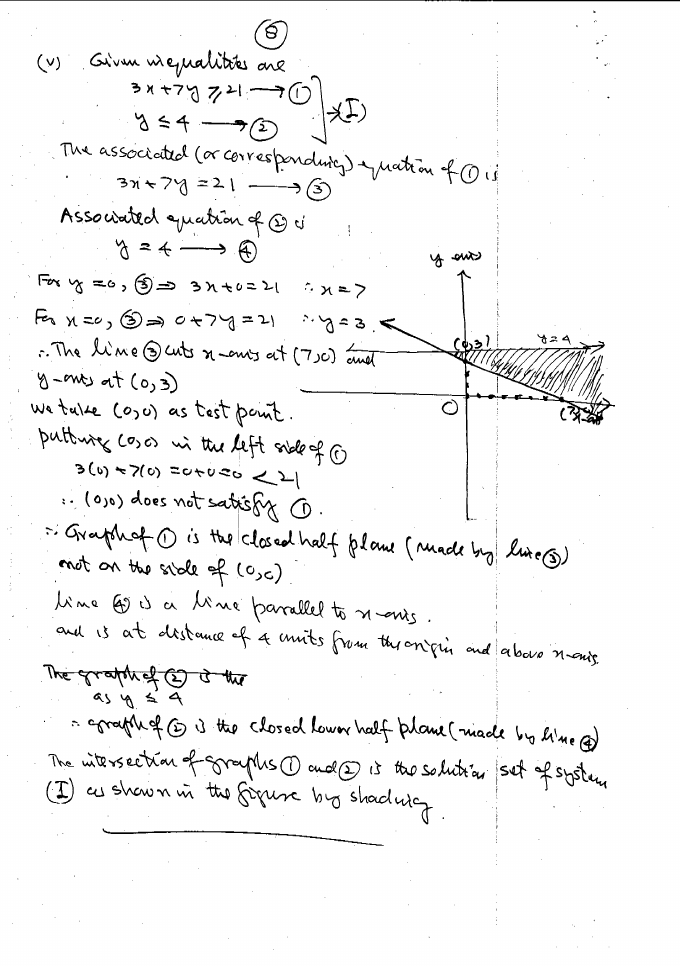 8
(v) Given inequalities are
3x+7y ⩾ 21 → ①
y ≤ 4 → ②
→(I)
The associated (or corresponding) equation of ① is
3x+7y = 21 → ③
Associated equation of ② is
y = 4 → ④
For y = 0, ③ ⇒ 3x+0 = 21 ∴ x = 7
For x = 0, ③ ⇒ 0+7y = 21 ∴ y = 3.
∴ The line ③ cuts x-axis at (7,0) and
y-axis at (0,3)
We take (0,0) as test point.
putting (0,0) in the left side of ①
3(0)+7(0) = 0+0 = 0 < 21
∴ (0,0) does not satisfy ①.
∴ Graph of ① is the closed half plane (made by line ③)
not on the side of (0,0)
line ④ is a line parallel to x-axis.
and is at distance of 4 units from the origin and above x-axis.
The graph of ② is the
as y ≤ 4
∴ graph of ② is the closed lower half plane (made by line ④)
The intersection of graphs ① and ② is the solution set of system
(I) as shown in the figure by shading.
y axis
(0,3)
y = 4
O